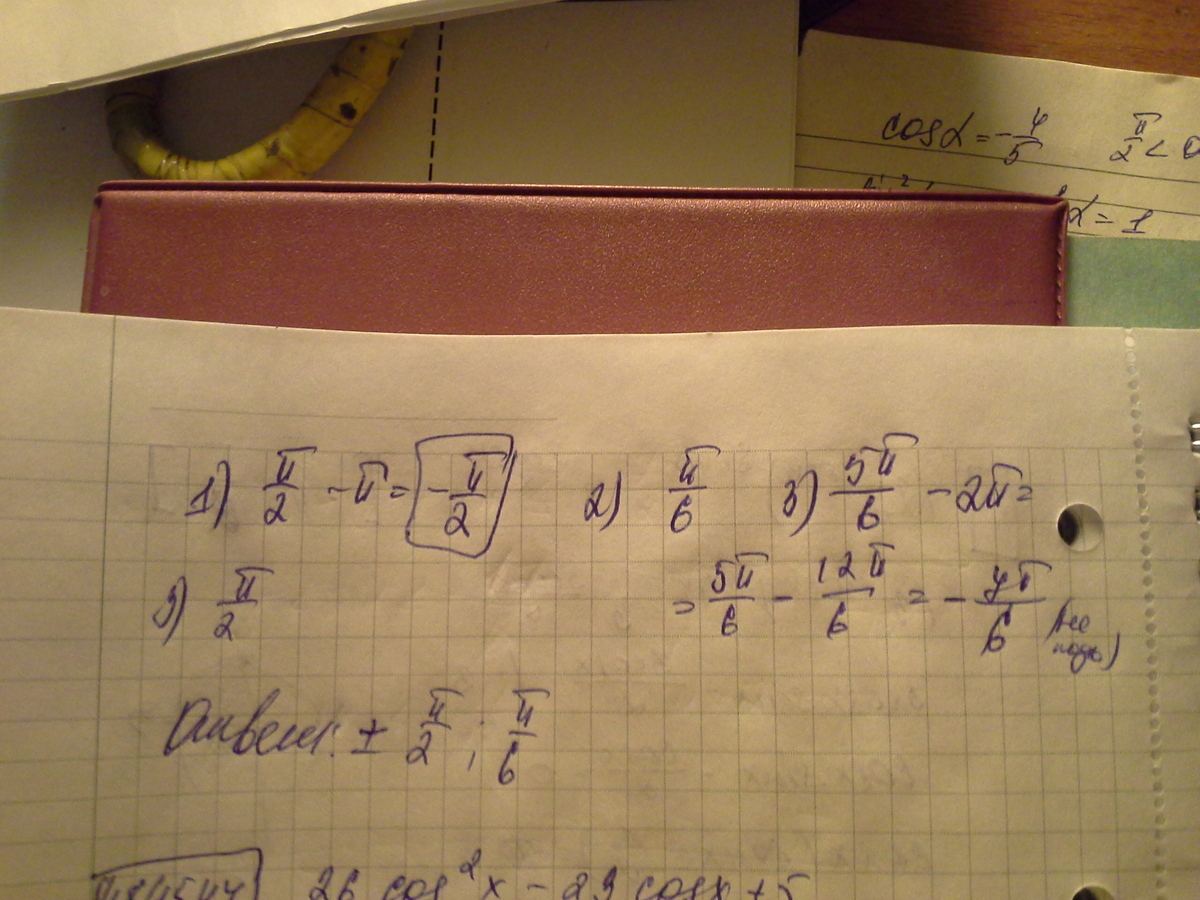 cosα = -4/5 π/2 <
α = 1
1) π/2 - π = -π/2 2) π/6 3) 5π/6 - 2π =
3) π/2 = 5π/6 - 12π/6 = - 7π/6 (не подх)
Ответ: ± π/2 ; π/6
26 cos²x - 23 cosx + 5